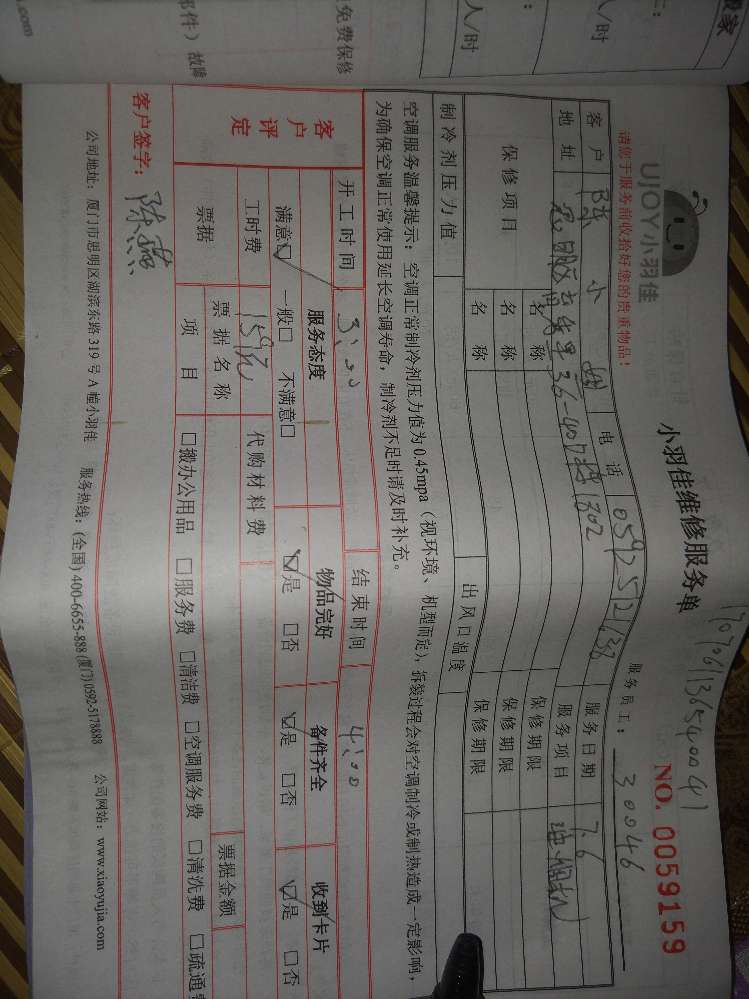 搬家
人/时
人/时
免费保修
部件）故障
.com
UJOY小羽佳
请您于服务前收拾好您的贵重物品！
1707061136540041
小羽佳维修服务单
NO. 0059159
服务员工： 30046
客户 陈小姐 电话 0592 服务日期 7.6
地址 36-407 1802 服务项目
保修项目 名称 保修期限
名称 保修期限
名称 保修期限
制冷剂压力值 出风口温度
空调服务温馨提示：空调正常制冷剂压力值为0.45mpa（视环境、机型而定），拆装过程会对空调制冷或制热造成一定影响，
为确保空调正常使用延长空调寿命，制冷剂不足时请及时补充。
客户评定
开工时间 3:00 结束时间 4:00
服务态度 物品完好 备件齐全 收到卡片
满意☑ 一般□ 不满意□ ☑是 □否 ☑是 □否 ☑是 □否
工时费 159元 代购材料费
票据 票据名称 票据金额
项目 □搬办公用品 □服务费 □清洁费 □空调服务费 □清洗费 □疏通
客户签字：
公司地址：厦门市思明区湖滨东路319号A幢小羽佳 服务热线：(全国) 400-6655-888 (厦门) 0592-5178888 公司网站：www.xiaoyujia.com